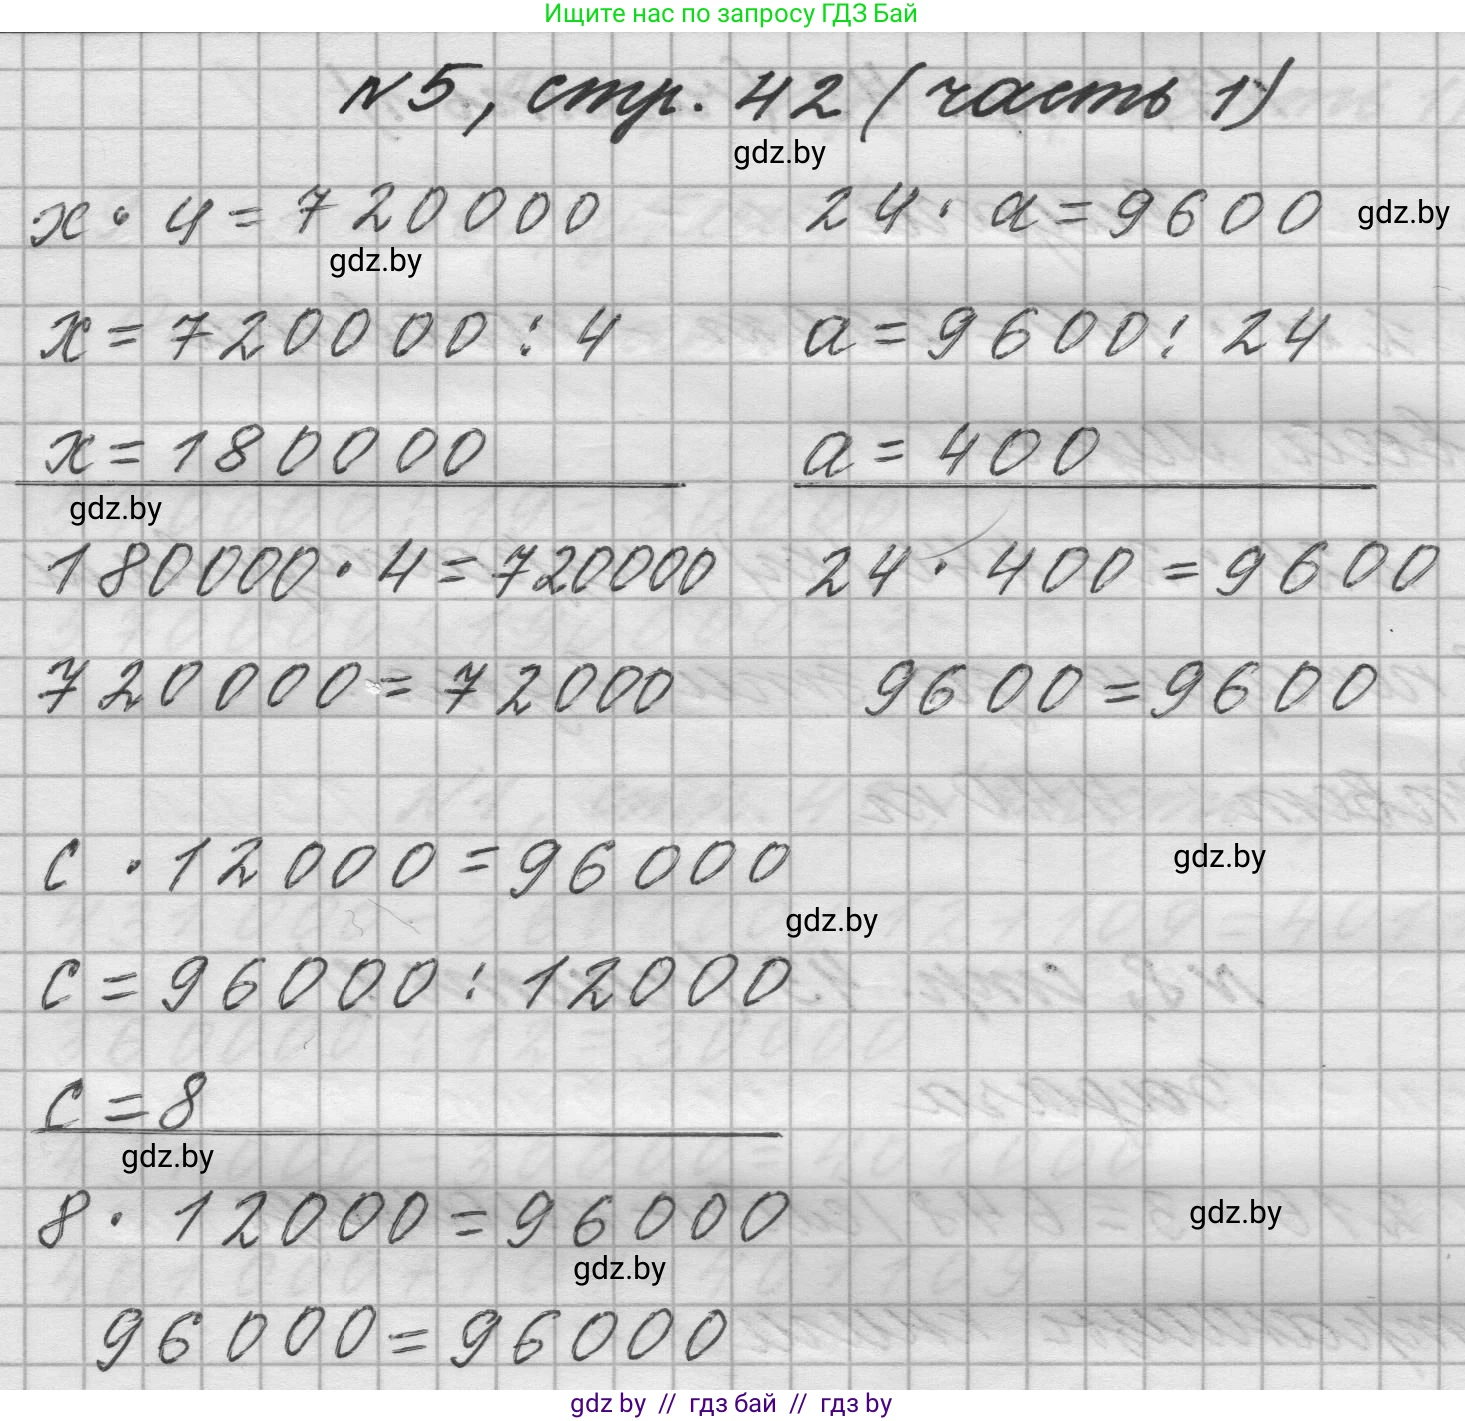 Ищите нас по запросу ГДЗ Бай
N5, стр. 42 (часть 1)
gdz.by
x · 4 = 720000
gdz.by
x = 720000 : 4
x = 180000
gdz.by
180000 · 4 = 720000
720000 = 72000
24 · a = 9600
gdz.by
a = 9600 : 24
a = 400
24 · 400 = 9600
9600 = 9600
c · 12000 = 96000
gdz.by
gdz.by
c = 96000 : 12000
c = 8
gdz.by
8 · 12000 = 96000
gdz.by
gdz.by
96000 = 96000
gdz by // гдз бай // гдз by